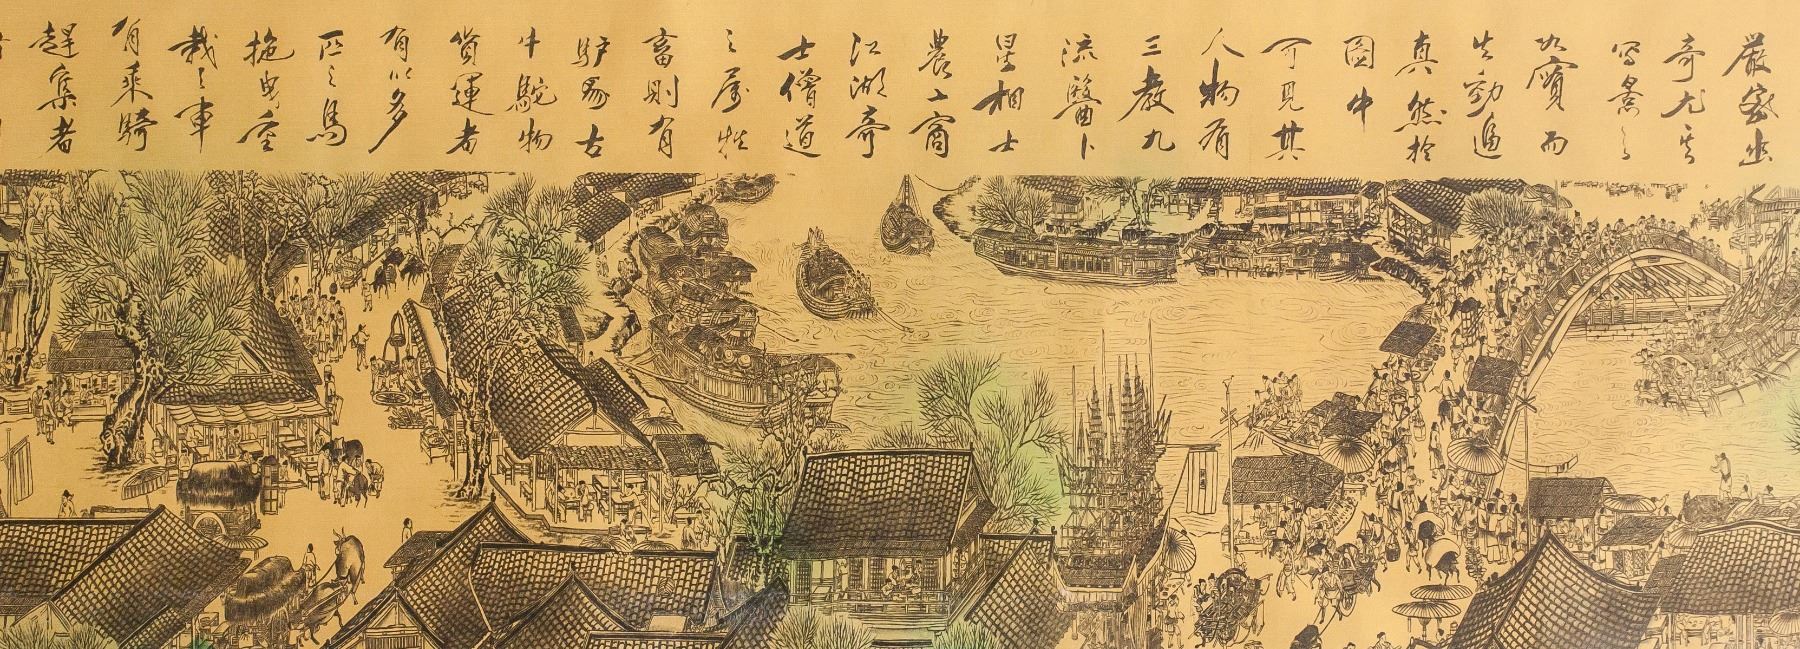 嚴
奇尤其
写景之
實而
生動逼
真然於
圖中
可見其
人物有
三教九
流醫卜
星相士
農工商
江湖奇
士僧道
之属牲
畜則有
馿
牛駝物
貨運者
有以多
匹之馬
拖曳重
載之車
有乘騎
趕集者